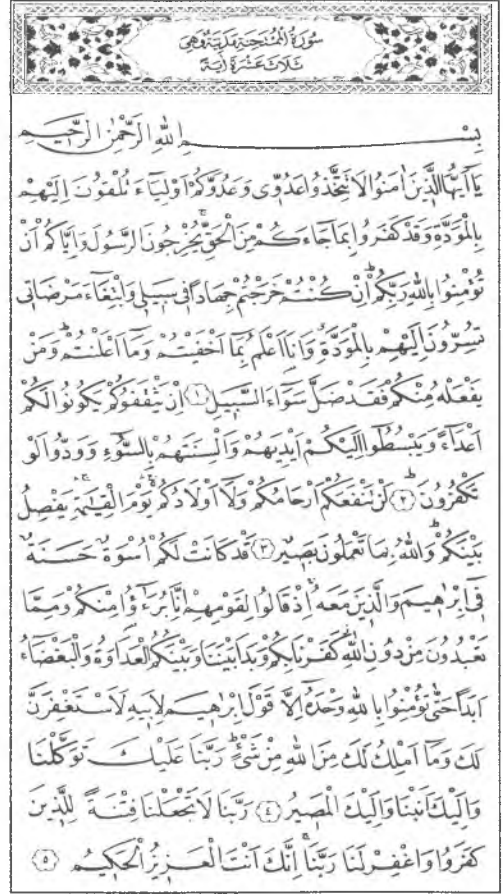 سُورَةُ الْمُمْتَحِنَةِ مَدَنِيَّةٌ وَهِيَ
ثَلَاثَ عَشْرَةَ اٰيَةً
بِسْمِ اللهِ الرَّحْمٰنِ الرَّحِيمِ
يَٓا اَيُّهَا الَّذِينَ اٰمَنُوا لَا تَتَّخِذُوا عَدُوِّى وَعَدُوَّكُمْ اَوْلِيَٓاءَ تُلْقُونَ اِلَيْهِمْ
بِالْمَوَدَّةِ وَقَدْ كَفَرُوا بِمَا جَٓاءَكُمْ مِنَ الْحَقِّۚ يُخْرِجُونَ الرَّسُولَ وَاِيَّاكُمْ اَنْ
تُؤْمِنُوا بِاللهِ رَبِّكُمْۜ اِنْ كُنْتُمْ خَرَجْتُمْ جِهَادًا فِى سَبِيلِى وَابْتِغَٓاءَ مَرْضَاتِى
تُسِرُّونَ اِلَيْهِمْ بِالْمَوَدَّةِ وَاَنَا۬ اَعْلَمُ بِمَٓا اَخْفَيْتُمْ وَمَٓا اَعْلَنْتُمْۜ وَمَنْ
يَفْعَلْهُ مِنْكُمْ فَقَدْ ضَلَّ سَوَٓاءَ السَّبِيلِ ﴿١﴾ اِنْ يَثْقَفُوكُمْ يَكُونُوا لَكُمْ
اَعْدَٓاءً وَيَبْسُطُٓوا اِلَيْكُمْ اَيْدِيَهُمْ وَاَلْسِنَتَهُمْ بِالسُّٓوءِ وَوَدُّوا لَوْ
تَكْفُرُونَۜ ﴿٢﴾ لَنْ تَنْفَعَكُمْ اَرْحَامُكُمْ وَلَٓا اَوْلَادُكُمْۚ يَوْمَ الْقِيٰمَةِۚ يَفْصِلُ
بَيْنَكُمْۜ وَاللهُ بِمَا تَعْمَلُونَ بَصِيرٌ ﴿٣﴾ قَدْ كَانَتْ لَكُمْ اُسْوَةٌ حَسَنَةٌ
فِٓى اِبْرٰهِيمَ وَالَّذِينَ مَعَهُۚ اِذْ قَالُوا لِقَوْمِهِمْ اِنَّا بُرَءٰٓؤُ۬ا مِنْكُمْ وَمِمَّا
تَعْبُدُونَ مِنْ دُونِ اللهِۘ كَفَرْنَا بِكُمْ وَبَدَا بَيْنَنَا وَبَيْنَكُمُ الْعَدَاوَةُ وَالْبَغْضَٓاءُ
اَبَدًا حَتّٰى تُؤْمِنُوا بِاللهِ وَحْدَهُٓ اِلَّا قَوْلَ اِبْرٰهِيمَ لِاَبِيهِ لَاَسْتَغْفِرَنَّ
لَكَ وَمَٓا اَمْلِكُ لَكَ مِنَ اللهِ مِنْ شَىْءٍۜ رَبَّنَا عَلَيْكَ تَوَكَّلْنَا
وَاِلَيْكَ اَنَبْنَا وَاِلَيْكَ الْمَصِيرُ ﴿٤﴾ رَبَّنَا لَا تَجْعَلْنَا فِتْنَةً لِلَّذِينَ
كَفَرُوا وَاغْفِرْ لَنَا رَبَّنَاۚ اِنَّكَ اَنْتَ الْعَزِيزُ الْحَكِيمُ ﴿٥﴾